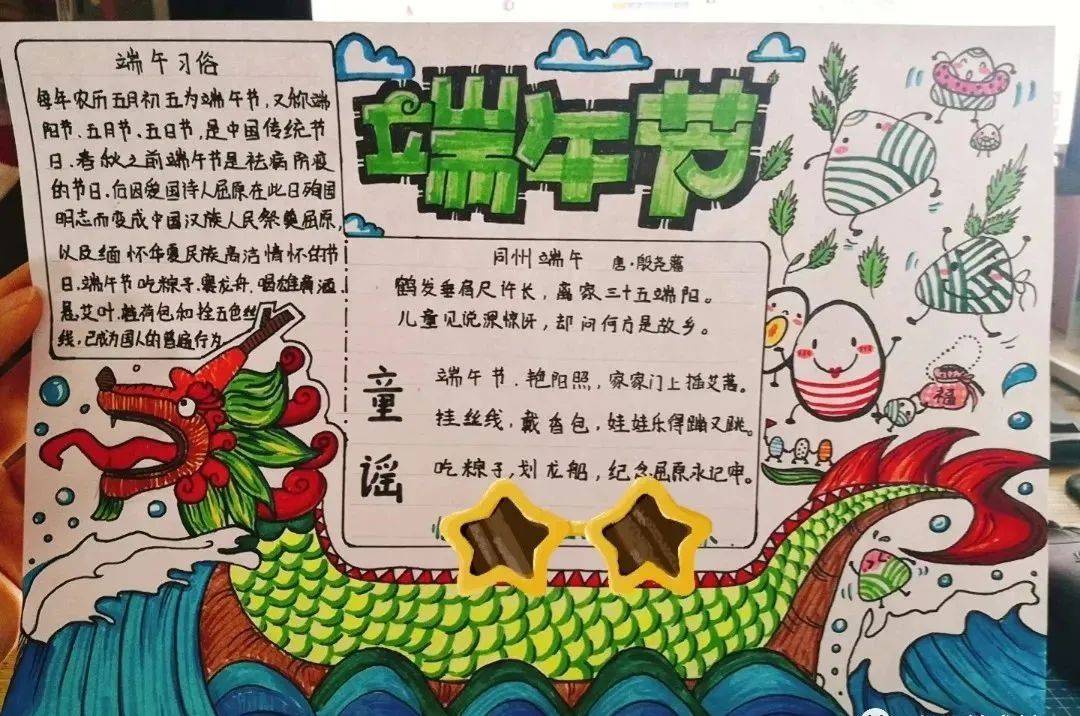 端午节
端午习俗
每年农历五月初五为端午节,又称端
阳节、五月节、五日节,是中国传统节
日。春秋之前端午节是祛病防疫
的节日。后因爱国诗人屈原在此日殉国
明志而变成中国汉族人民祭奠屈原,
以及缅怀华夏民族高洁情怀的节
日。端午节吃粽子.赛龙舟、喝雄黄酒
悬艾叶.戴荷包和拴五色丝
线,已成为国人的普遍行为
同州端午 唐·殷尧藩
鹤发垂肩尺许长,离家三十五端阳。
儿童见说深惊讶,却问何方是故乡。
童谣
端午节、艳阳照,家家门上插艾蒿。
挂丝线,戴香包,娃娃乐得蹦又跳。
吃粽子,划龙船,纪念屈原永记中。
福